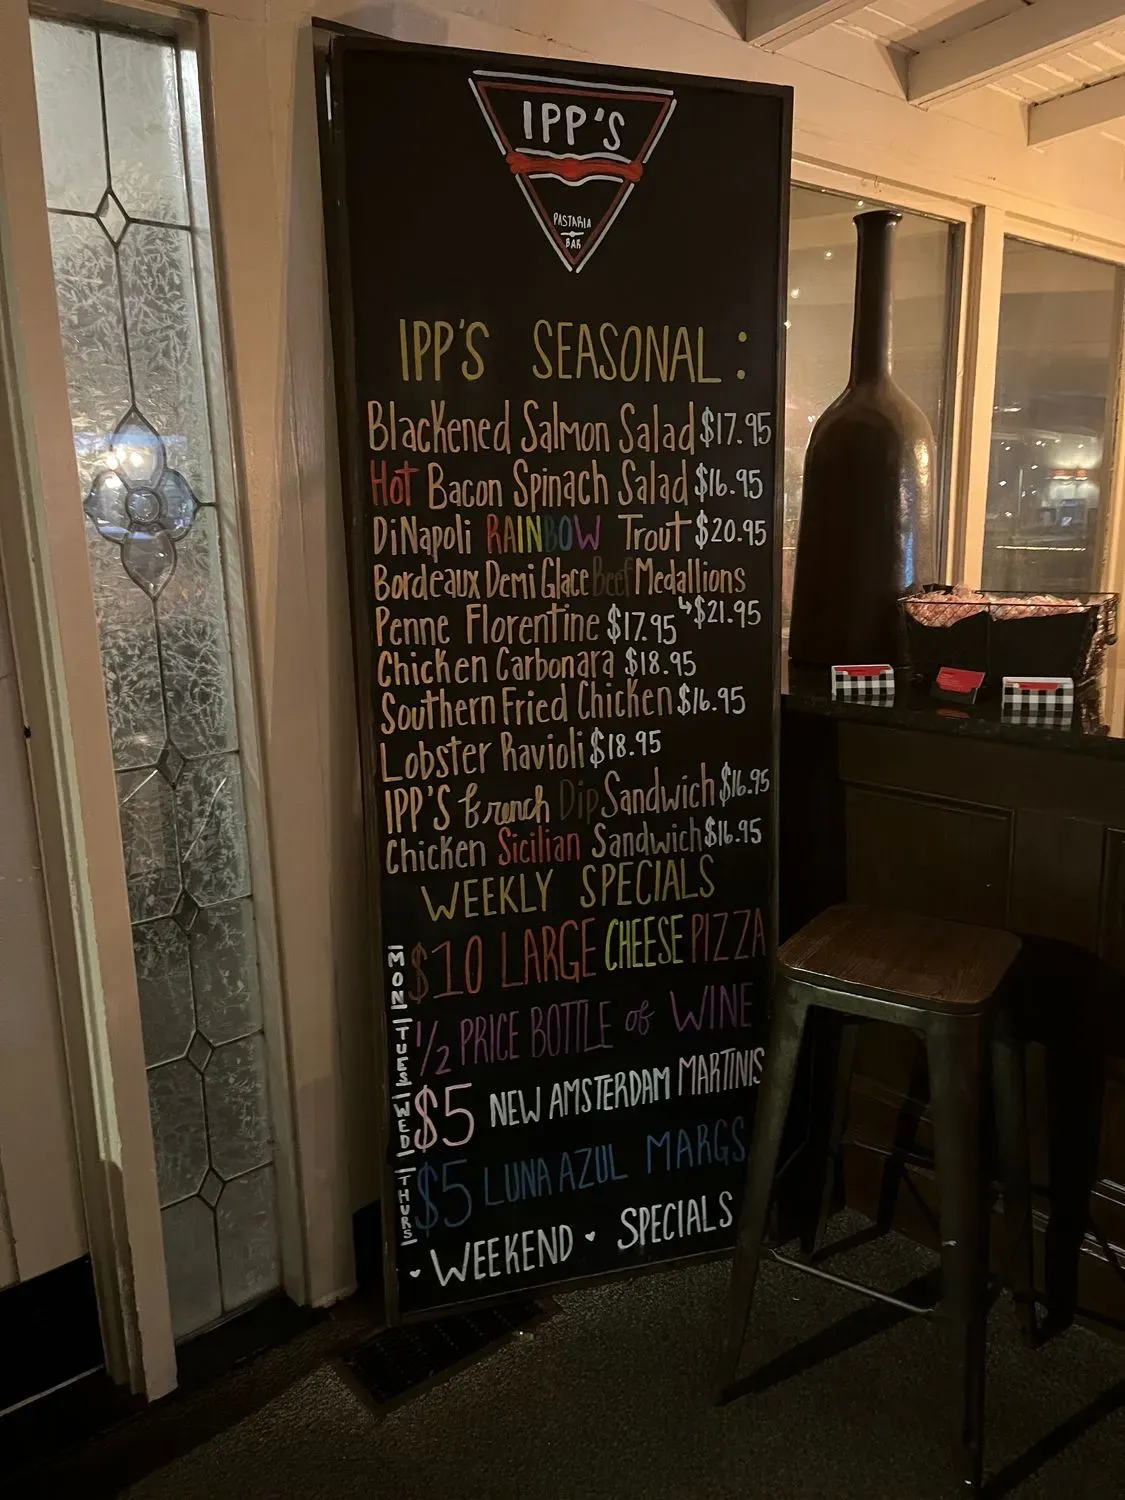 IPP'S
PASTARIA
BAR
IPP'S SEASONAL:
Blackened Salmon Salad $17.95
Hot Bacon Spinach Salad $16.95
DiNapoli RAINBOW Trout $20.95
Bordeaux Demi Glace Beef Medallions
↳$21.95
Penne Florentine $17.95
Chicken Carbonara $18.95
Southern Fried Chicken $16.95
Lobster Ravioli $18.95
IPP'S French Dip Sandwich $16.95
Chicken Sicilian Sandwich $16.95
WEEKLY SPECIALS
MON $10 LARGE CHEESE PIZZA
TUES 1/2 PRICE BOTTLE of WINE
WED $5 NEW AMSTERDAM MARTINIS
THURS $5 LUNA AZUL MARGS
♥ WEEKEND ♥ SPECIALS